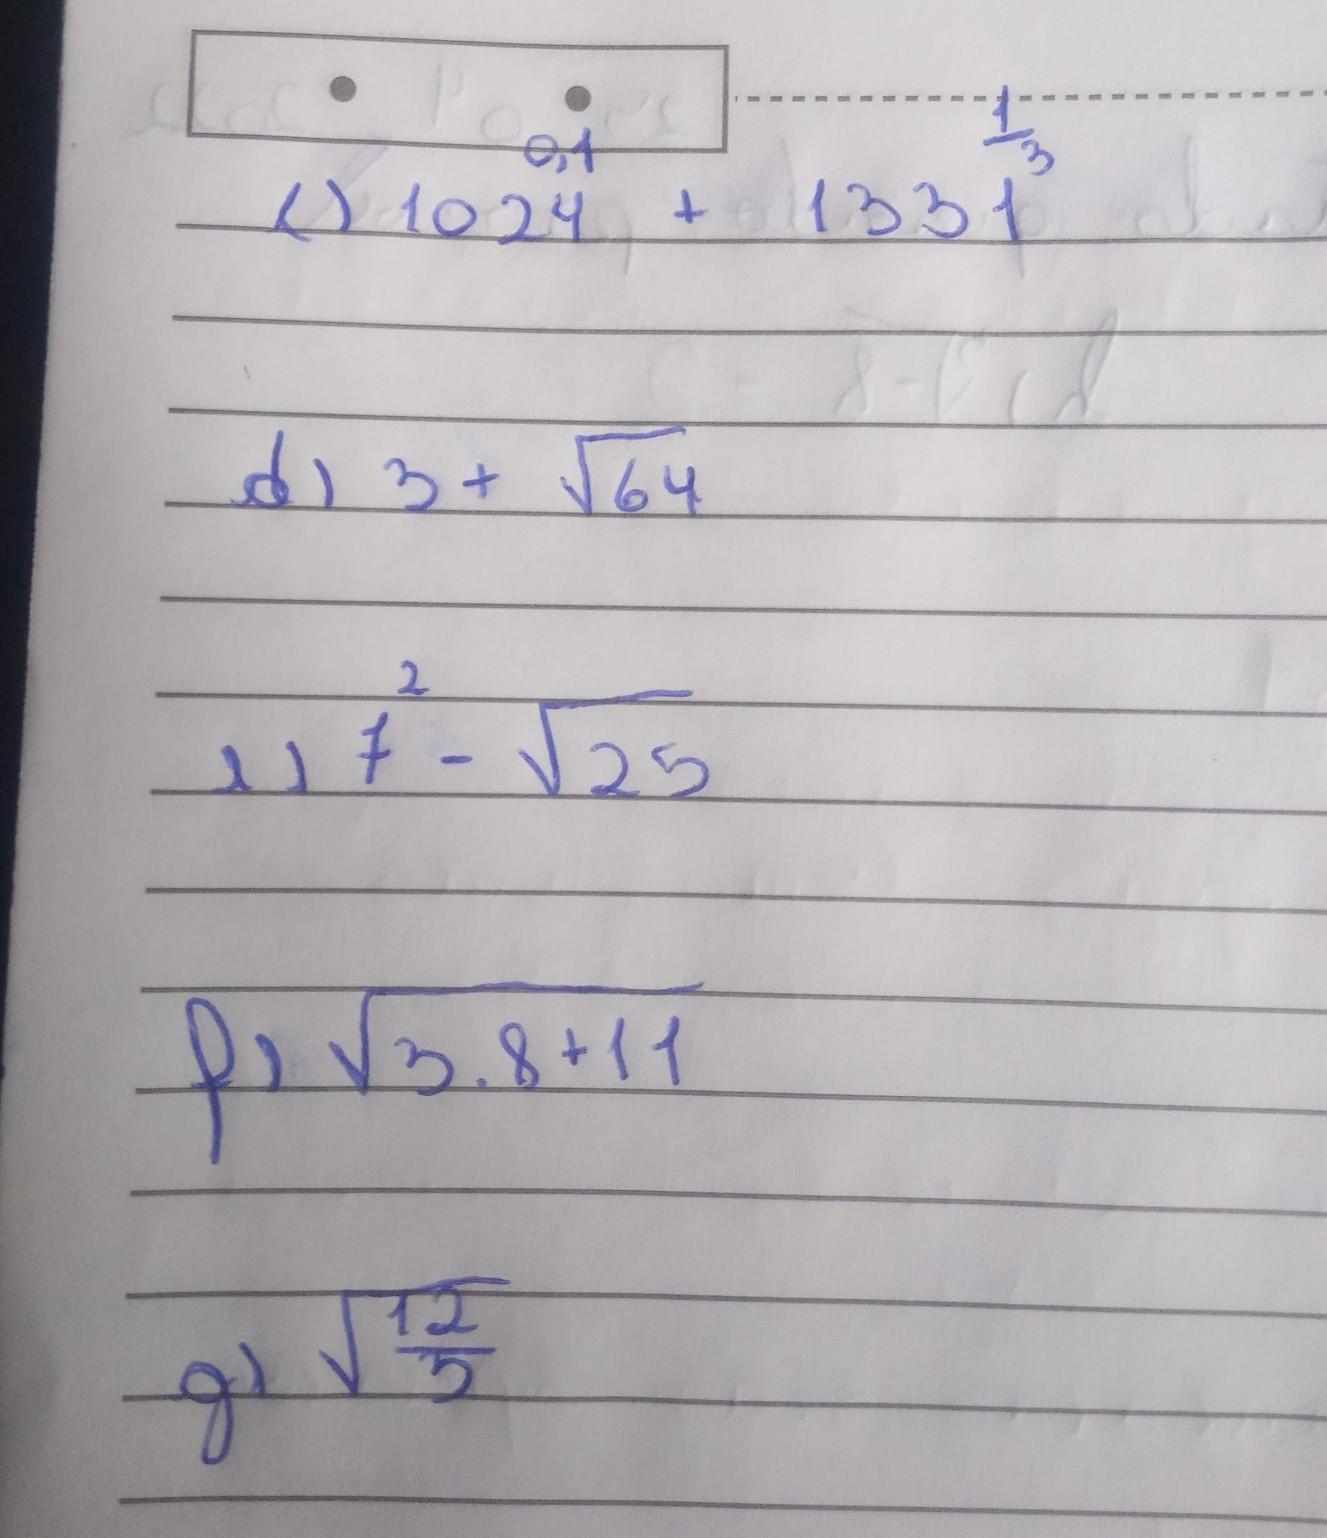 c) 1024^0,1 + 1331^1/3
d) 3 + √64
e) 7² - √25
f) √3.8+11
g) √12/3